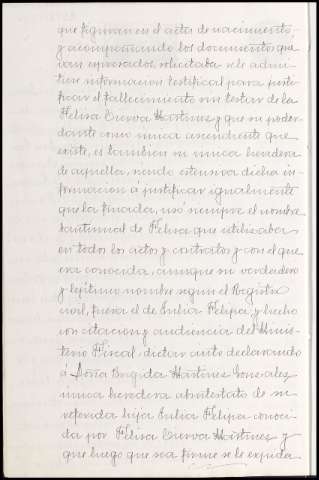 que figuran en el acta de nacimiento,
y acompañando los documentos que
van enumerados, solicitaba se le admi-
tiese información testifical para justi-
ficar el fallecimiento sin testar de la
Felisa Cuerva Martinez y que su poder-
dante como unica ascendiente que
existe, es tambien su unica heredera
de aquella, siendo estensiva dicha in-
formacion á justificar igualmente
que la finada, usó siempre el nombre
de Felisa que utilizaba
en todos los actos y contratos y con el que
era conocida, aunque su verdadero
y legitimo nombre segun el Registro
civil, fuera el de Julia Felipa, y hecho
con citacion y audiencia del Minis-
terio Fiscal, dictar auto declarando
á Doña Brigida Martinez Gonzalez
unica heredera abintestato de su
referida hija Julia Felipa conoci-
da por Felisa Cuerva Martinez y
que luego que sea firme se le expida